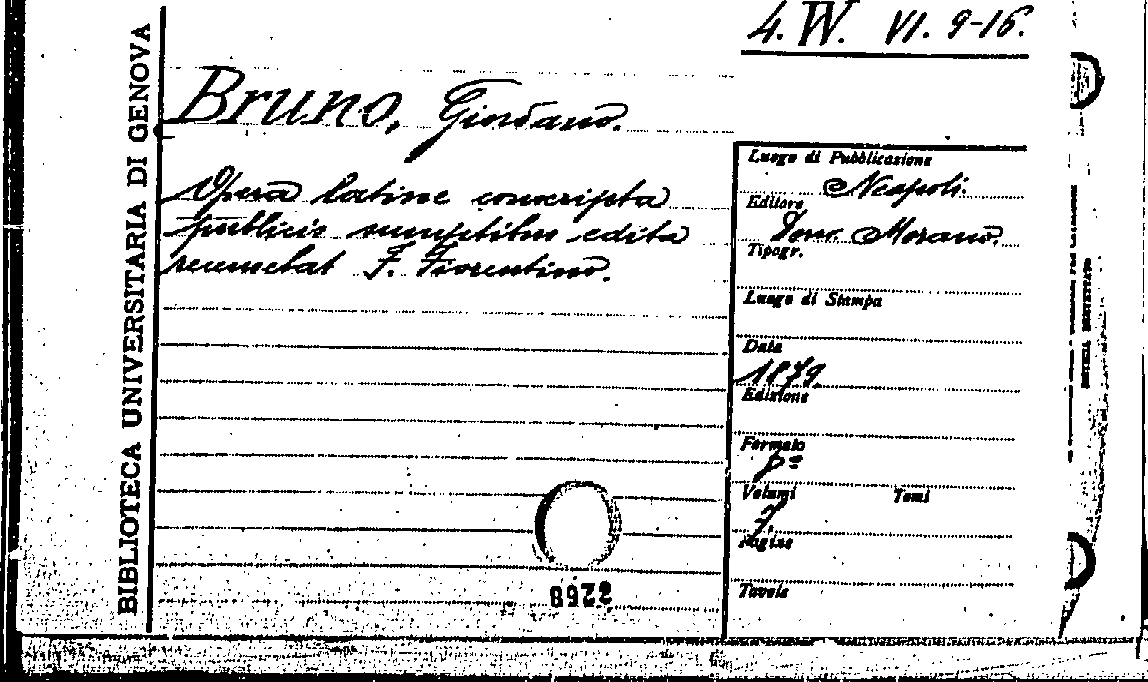 4. W. VI. 9-16.
BIBLIOTECA UNIVERSITARIA DI GENOVA
Bruno, Giordano.
Opera latine conscripta
publicis sumptibus edita
recensebat F. Fiorentino.
Luogo di Pubblicazione
Neapoli.
Editore
Dom. Morano.
Tipogr.
Luogo di Stampa
Data
1879.
Edizione
Formato
8º
Volumi Tomi
Pagine
Tavole